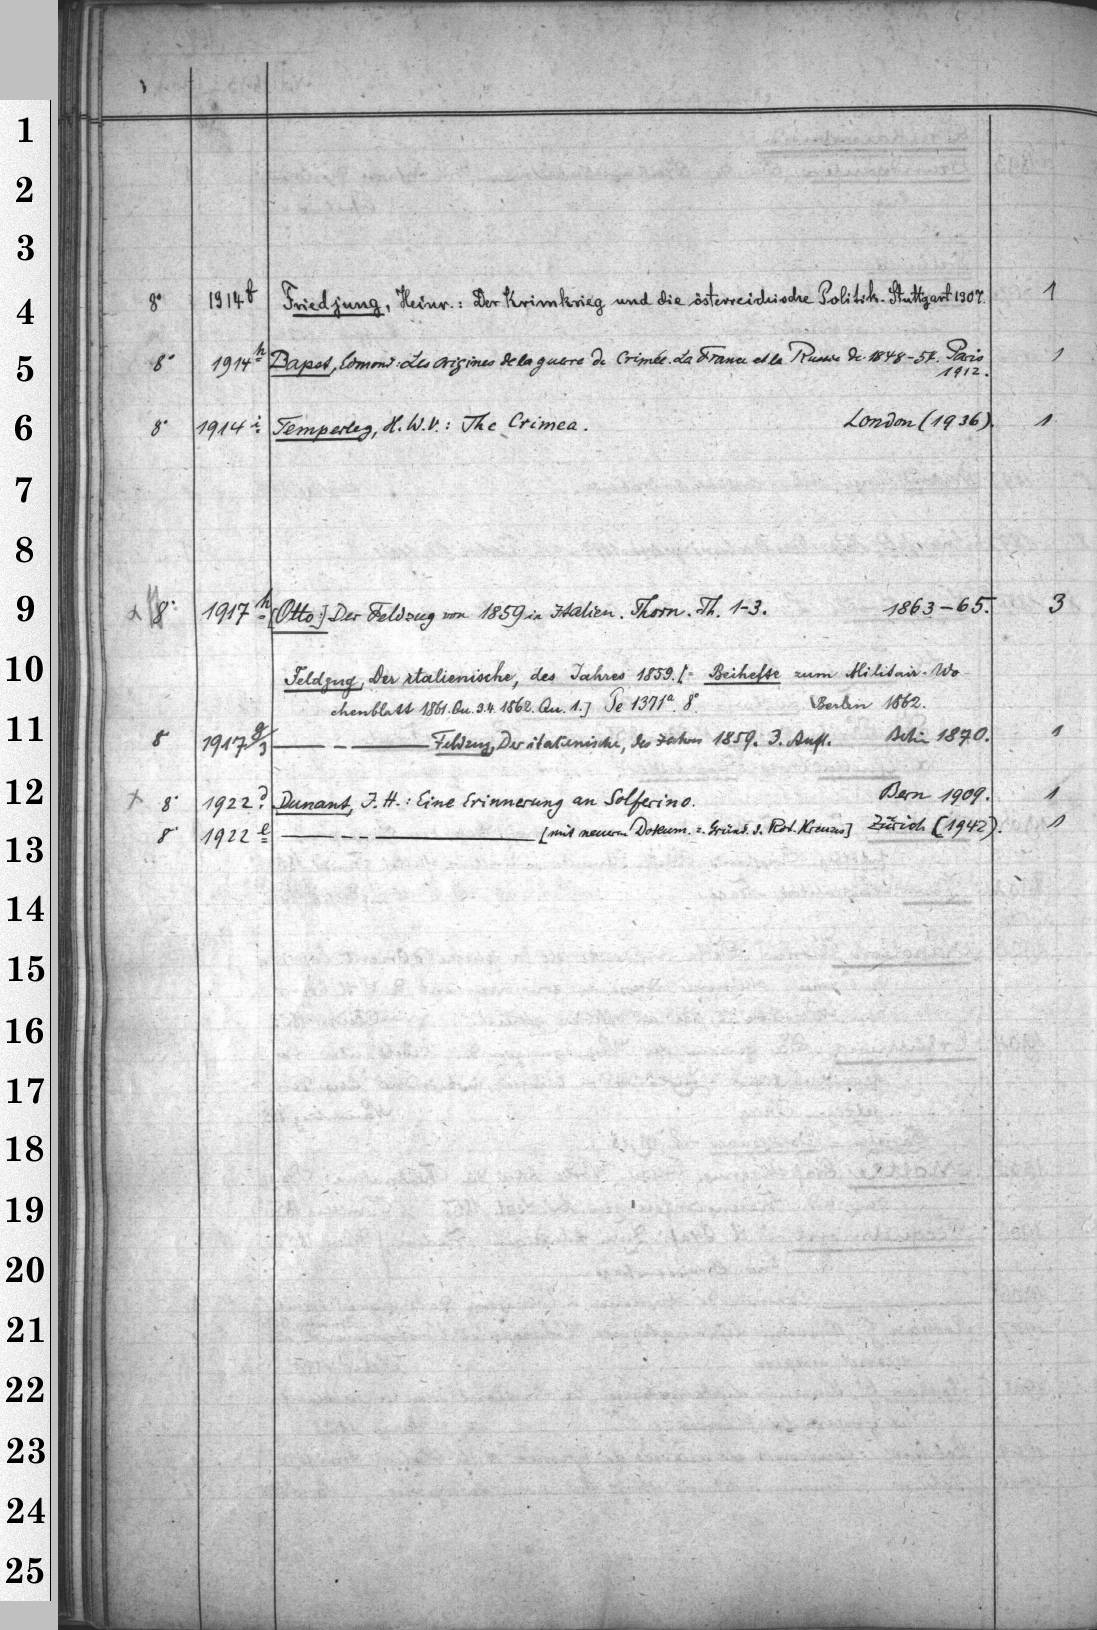 1
2
3
4
5
6
7
8
9
10
11
12
13
14
15
16
17
18
19
20
21
22
23
24
25
8° 1914 f Friedjung, Heinr.: Der Krimkrieg und die österreichische Politik. Stuttgart 1907. 1
8° 1914 h Bapst, Edmond: Les origines de la guerre de Crimée. La France et la Russie de 1848-54. Paris 1
1912.
8° 1914 i. Temperley, H.W.V.: The Crimea. London (1936). 1
+ 8° 1917 h [Otto:] Der Feldzug von 1859 in Italien. Thorn. Th. 1-3. 1863-65. 3
Feldzug, Der italienische, des Jahres 1859. [= Beihefte zum Militair-Wo
chenblatt 1861. Qu. 3.4. 1862. Qu. 1.] Te 1371a. 8° Berlin 1862.
8° 1917 g/3 — - — Feldzug, Der italienische, des Jahres 1859. 3. Aufl. Berlin 1870. 1
+ 8° 1922 d. Dunant, J. H.: Eine Erinnerung an Solferino. Bern 1909. 1
8° 1922 e — - - — [mit neuern Dokum. z. Gründ. d. Rot. Kreuzes] Zürich (1942). 1